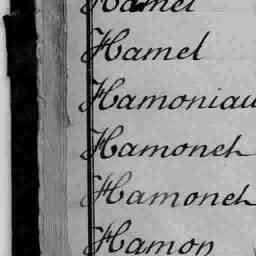 Hamel
Hamel
Hamoniau
Hamoneh
Hamoneh
Hamon